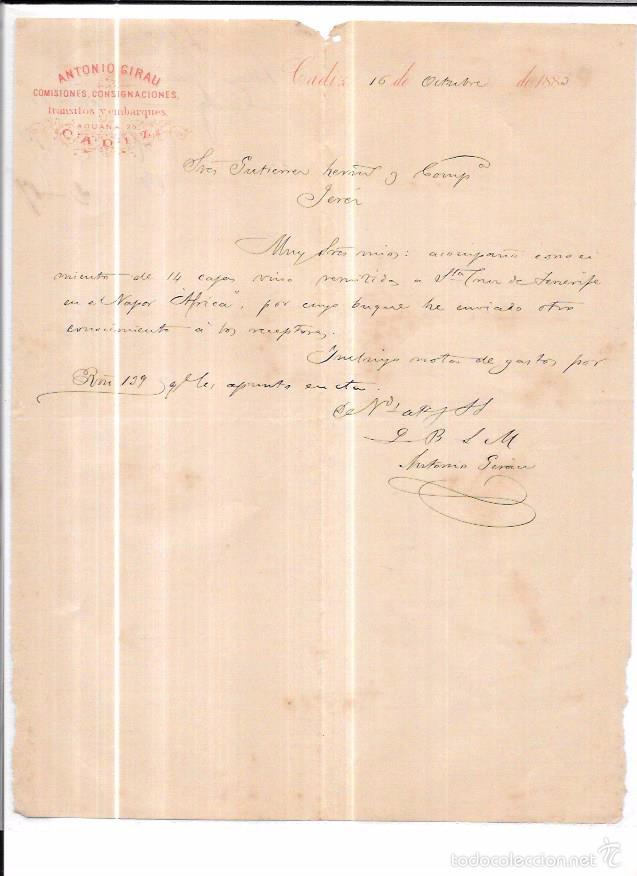 ANTONIO GIRAU
COMISIONES, CONSIGNACIONES,
tránsitos y embarques.
ADUANA
CADIZ
Cadiz 16 de Octubre de 1883
Sres Gutierrez herms y Compª
Jerez
Muy Sres mios: acompaño conoci
miento de 14 cajas vino remitidas a Sta Cruz de Tenerife
en el Vapor "Africa", por cuyo buque he enviado otro
conocimiento á los receptores.
Incluyo nota de gastos por
Rvn 139 qe les apunto en cta.
de Vds atº SS
Q B S M
Antonio Girau
todocoleccion.net